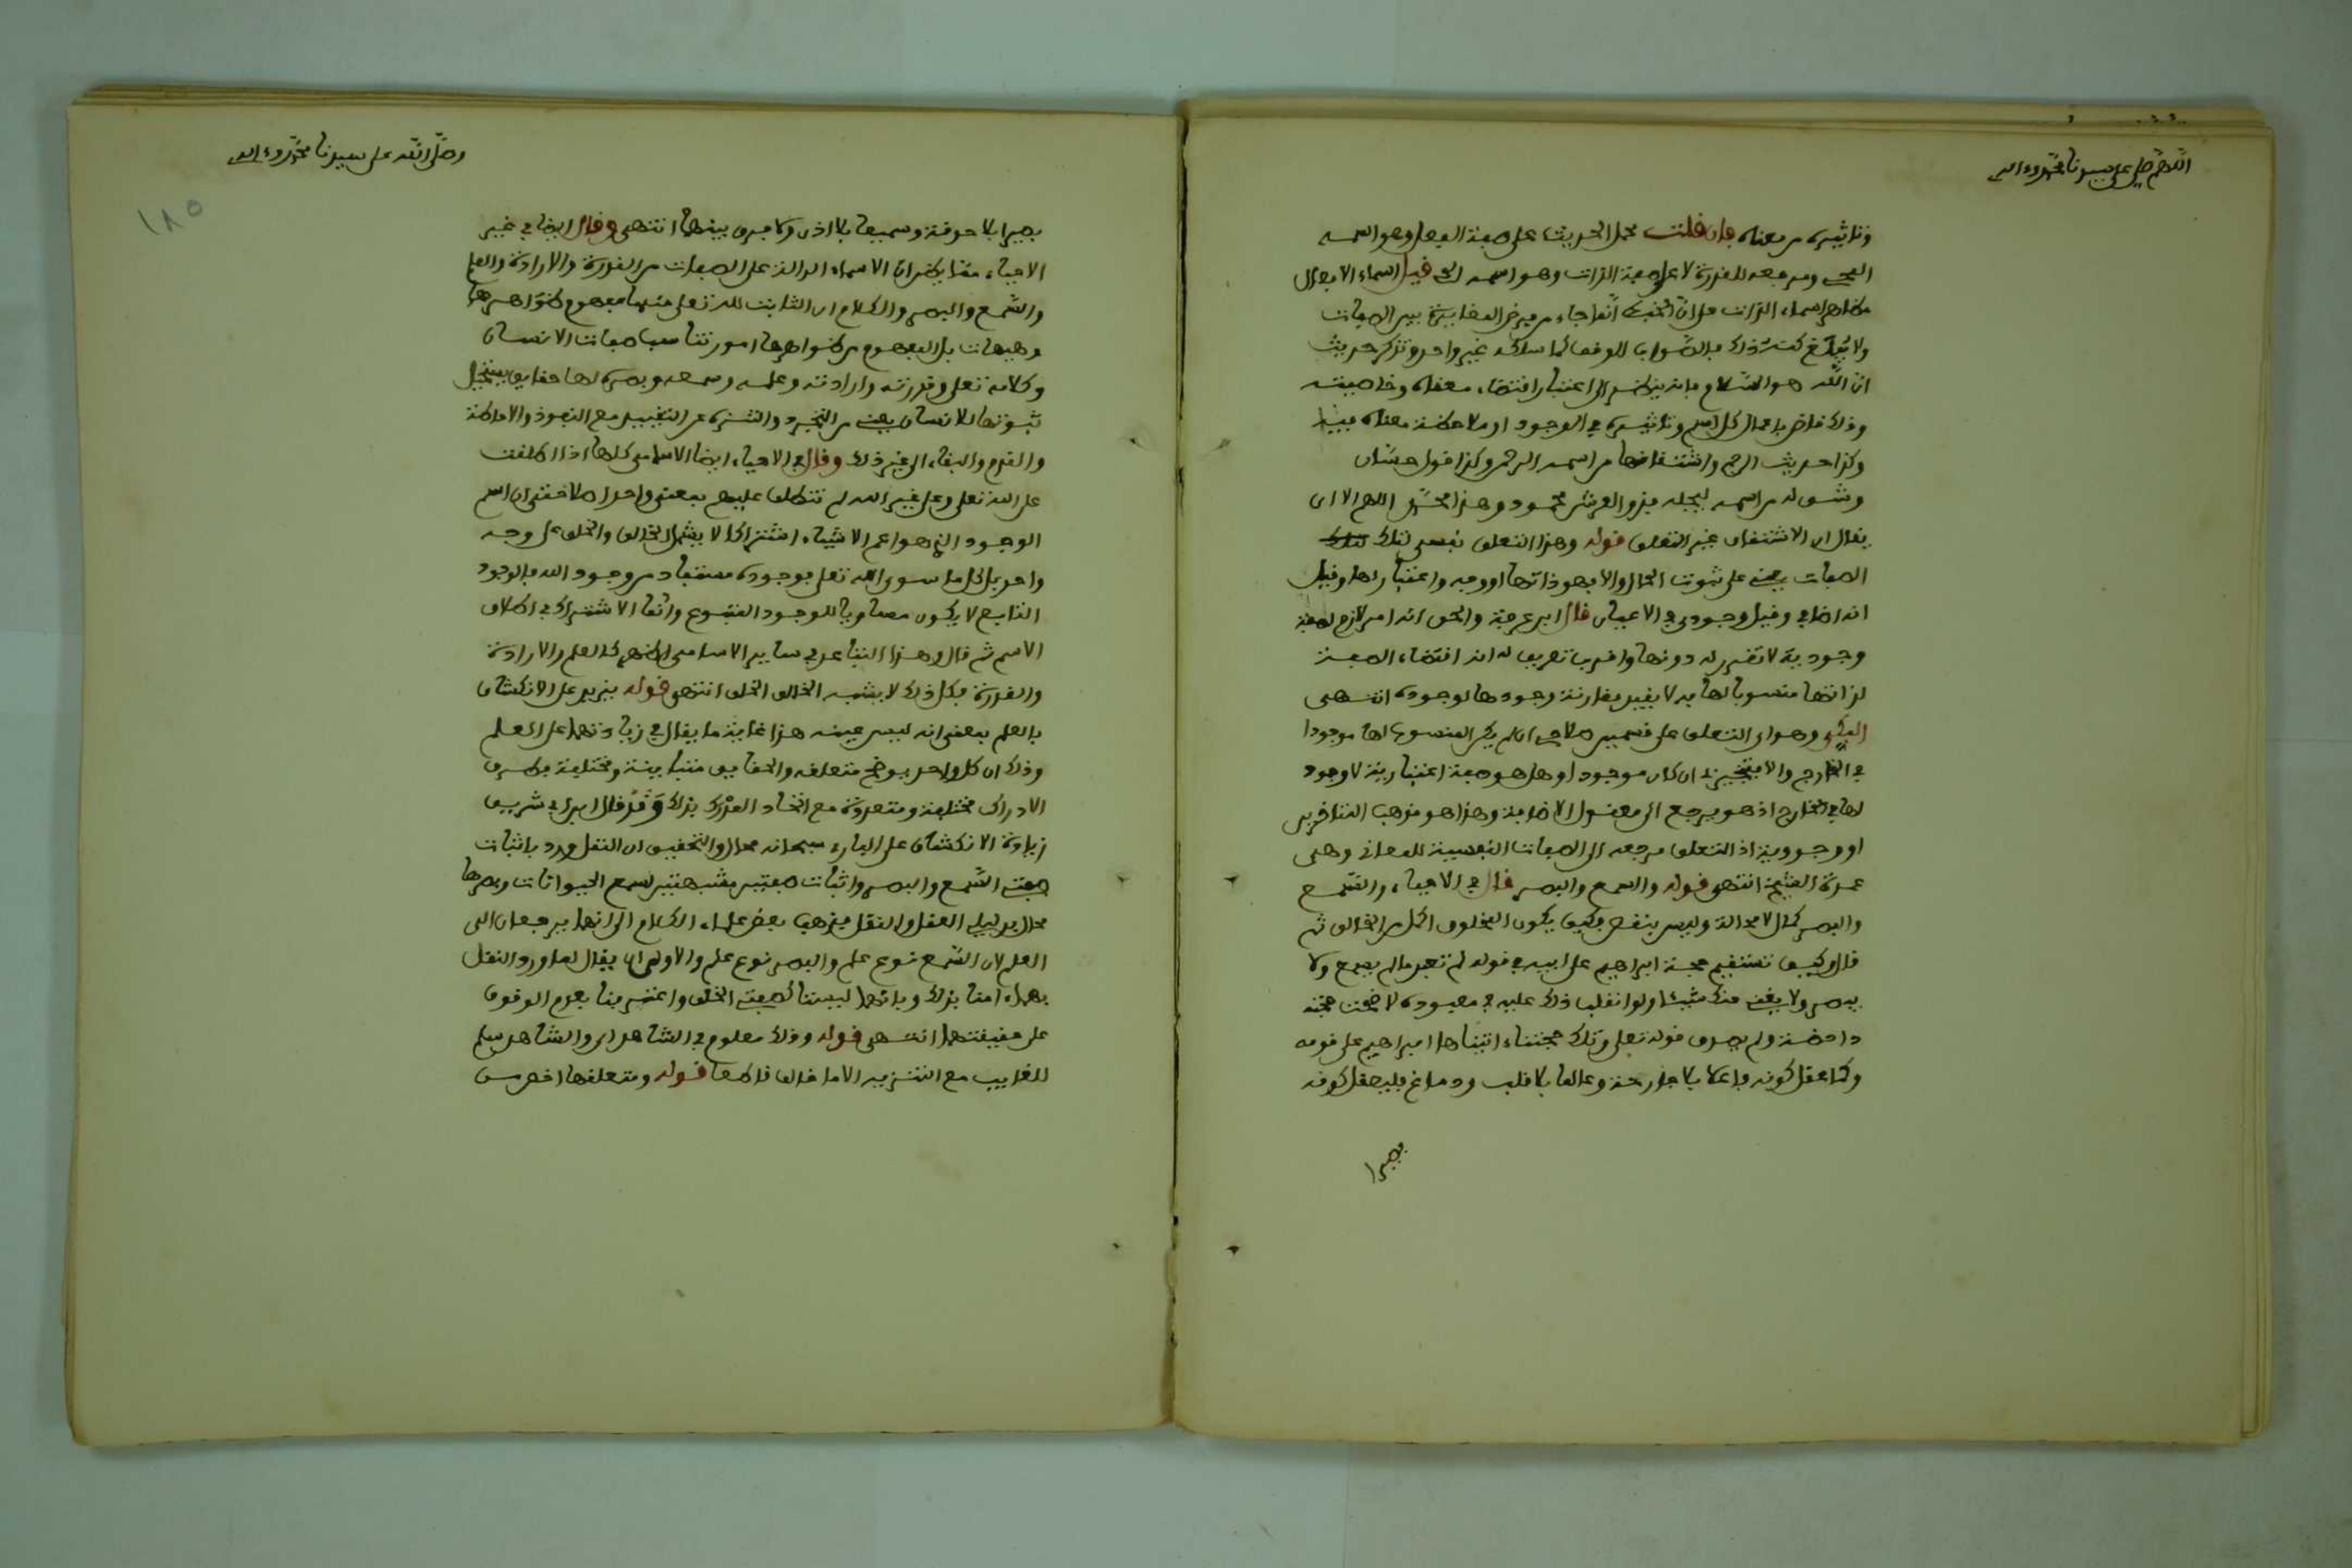 اللهم صل على سيدنا محمد وءاله
وتاثيره من معناه فان قلت محمل الحديث على صفة الفعل وهو اسمه
المحيى ومرجعه للقدرة لا على صفة الذات وهو اسمه الحي قيل اسماء الافعال
مظاهر اسماء الذات
ان الله هو السلام فانه ينظر الى اعتبار اقتضاء معناه وخاصيته
وذلك قاض باعمال كل اسم وتاثيره في الوجود او ملاحظة معناه فيه
وكذا حديث الرحم واشتقاقها من اسمه الرحمن وكذا قول حسان
وشق له من اسمه ليجله فذو العرش محمود وهذا محمد اللهم الا ان
يقال ان الاشتقاق غير التعلق قوله وهذا التعلق نفسي لتلك
الصفات يعني على ثبوت الحال والا فهو ذاتها او وجه واعتبار لها وقيل
انه اضافي وقيل وجودي في الاعيان قال ابن عرفة والحق انه امر لازم لصفة
وجودية لا تقرر له دونها واقرب تعريف له انه اقتضاء الصفة
لذاتها منسوبا لها به لا بقيد مقارنة وجودها لوجوده انتهى
وهو اى التعلق على قسمين صلاحي ان لم يكن المنسوب لها موجودا
في الخارج والا فتنجيزي ان كان موجودا وهل هو صفة اعتبارية لا وجود
لها في الخارج اذ هو يرجع الى معقول الاضافة وهذا هو مذهب المتاخرين
او وجودية اذ التعلق مرجعه الى الصفات النفسية للمعاني وهي
عمرة القيمة انتهى قوله والسمع والبصر قال في الاحياء والسمع
والبصر كمال لا محالة وليس بنقص فكيف يكون المخلوق اكمل من الخالق ثم
قال وكيف تستقيم حجة ابراهيم على ابيه في قوله لم تعبد ما لم يسمع ولا
يبصر ولا يغني عنك شيئا ولو انقلب ذلك عليه في معبوده لاضحت حجته
داحضة ولم يصدق قوله تعلى وتلك حجتنا ءاتيناها ابراهيم على قومه
وكما عقل كونه فاعلا بلا جارحة وعالما بلا قلب ودماغ فليعقل كونه
بصيرا
وصلى الله على سيدنا محمد وءاله
١٨٥
بصيرا بلا حدقة وسميعا بلا اذن ولا فرق بينهما انتهى وقال ايضا في غير
الاحياء مما يظن ان الاسماء الدالة على الصفات من القدرة والارادة والعلم
والسمع والبصر والكلام ان الثابت لله تعلى منها مفهوم ظواهرها
وهيهات بل المفهوم من ظواهرها امور تناسب صفات الانسان
وكلامه تعلى وقدرته وارادته وعلمه وسمعه وبصره لها حقايق يستحيل
ثبوتها للانسان يعني من التجرد والتنزه عن التقييد مع النفوذ والاحاطة
والقدم والبقاء الى غير ذلك وقال في الاحياء ايضا الاسامى كلها اذا اطلقت
على الله تعلى وعلى غير الله لم تنطلق عليهم بمعنى واحد اصلا حتى ان اسم
الوجود الذى هو اعم الاشياء اشتراكا لا يشمل الخالق والخلق على وجه
واحد بل كل ما سوى الله تعلى فوجوده مستفاد من وجود الله فالوجود
التابع لا يكون مساويا للوجود المتبوع وانما الاشتراك في اطلاق
الاسم ثم قال وهذا التباعد في ساير الاسامى اظهر كالعلم والارادة
والقدرة فكل ذلك لا يشبه الخالق الخلق انتهى قوله يزيد على الانكشاف
بالعلم بمعنى انه ليس عينه هذا غاية ما يقال في زيادتهما على العلم
وذلك ان كل واحد يوضح متعلقه والحقايق متباينة ومختلفة فطرق
الادراك مختلفة ومتعددة مع اتحاد المدرك بذلك وقد قال ابن ابي شريف
زيادة الانكشاف على البارء سبحانه محال والتحقيق ان النقل ورد باثبات
صفتى السمع والبصر واثبات صفتين مشبهتين لسمع الحيوانات وبصرها
محال بدليلى العقل والنقل فذهب بعض علماء الكلام الى انهما يرجعان الى
العلم لان السمع نوع علم والبصر نوع علم والاولى ان يقال لما ورد النقل
بهما ءامنا بذلك وبانهما ليستا كصفتى الخلق واعترفنا بعدم الوقوف
على حقيقتهما انتهى قوله وذلك معلوم في الشاهد اى والشاهد سلم
للغايب مع التنزيه الا ما خالف قاطعا قوله ومتعلقها اخص من